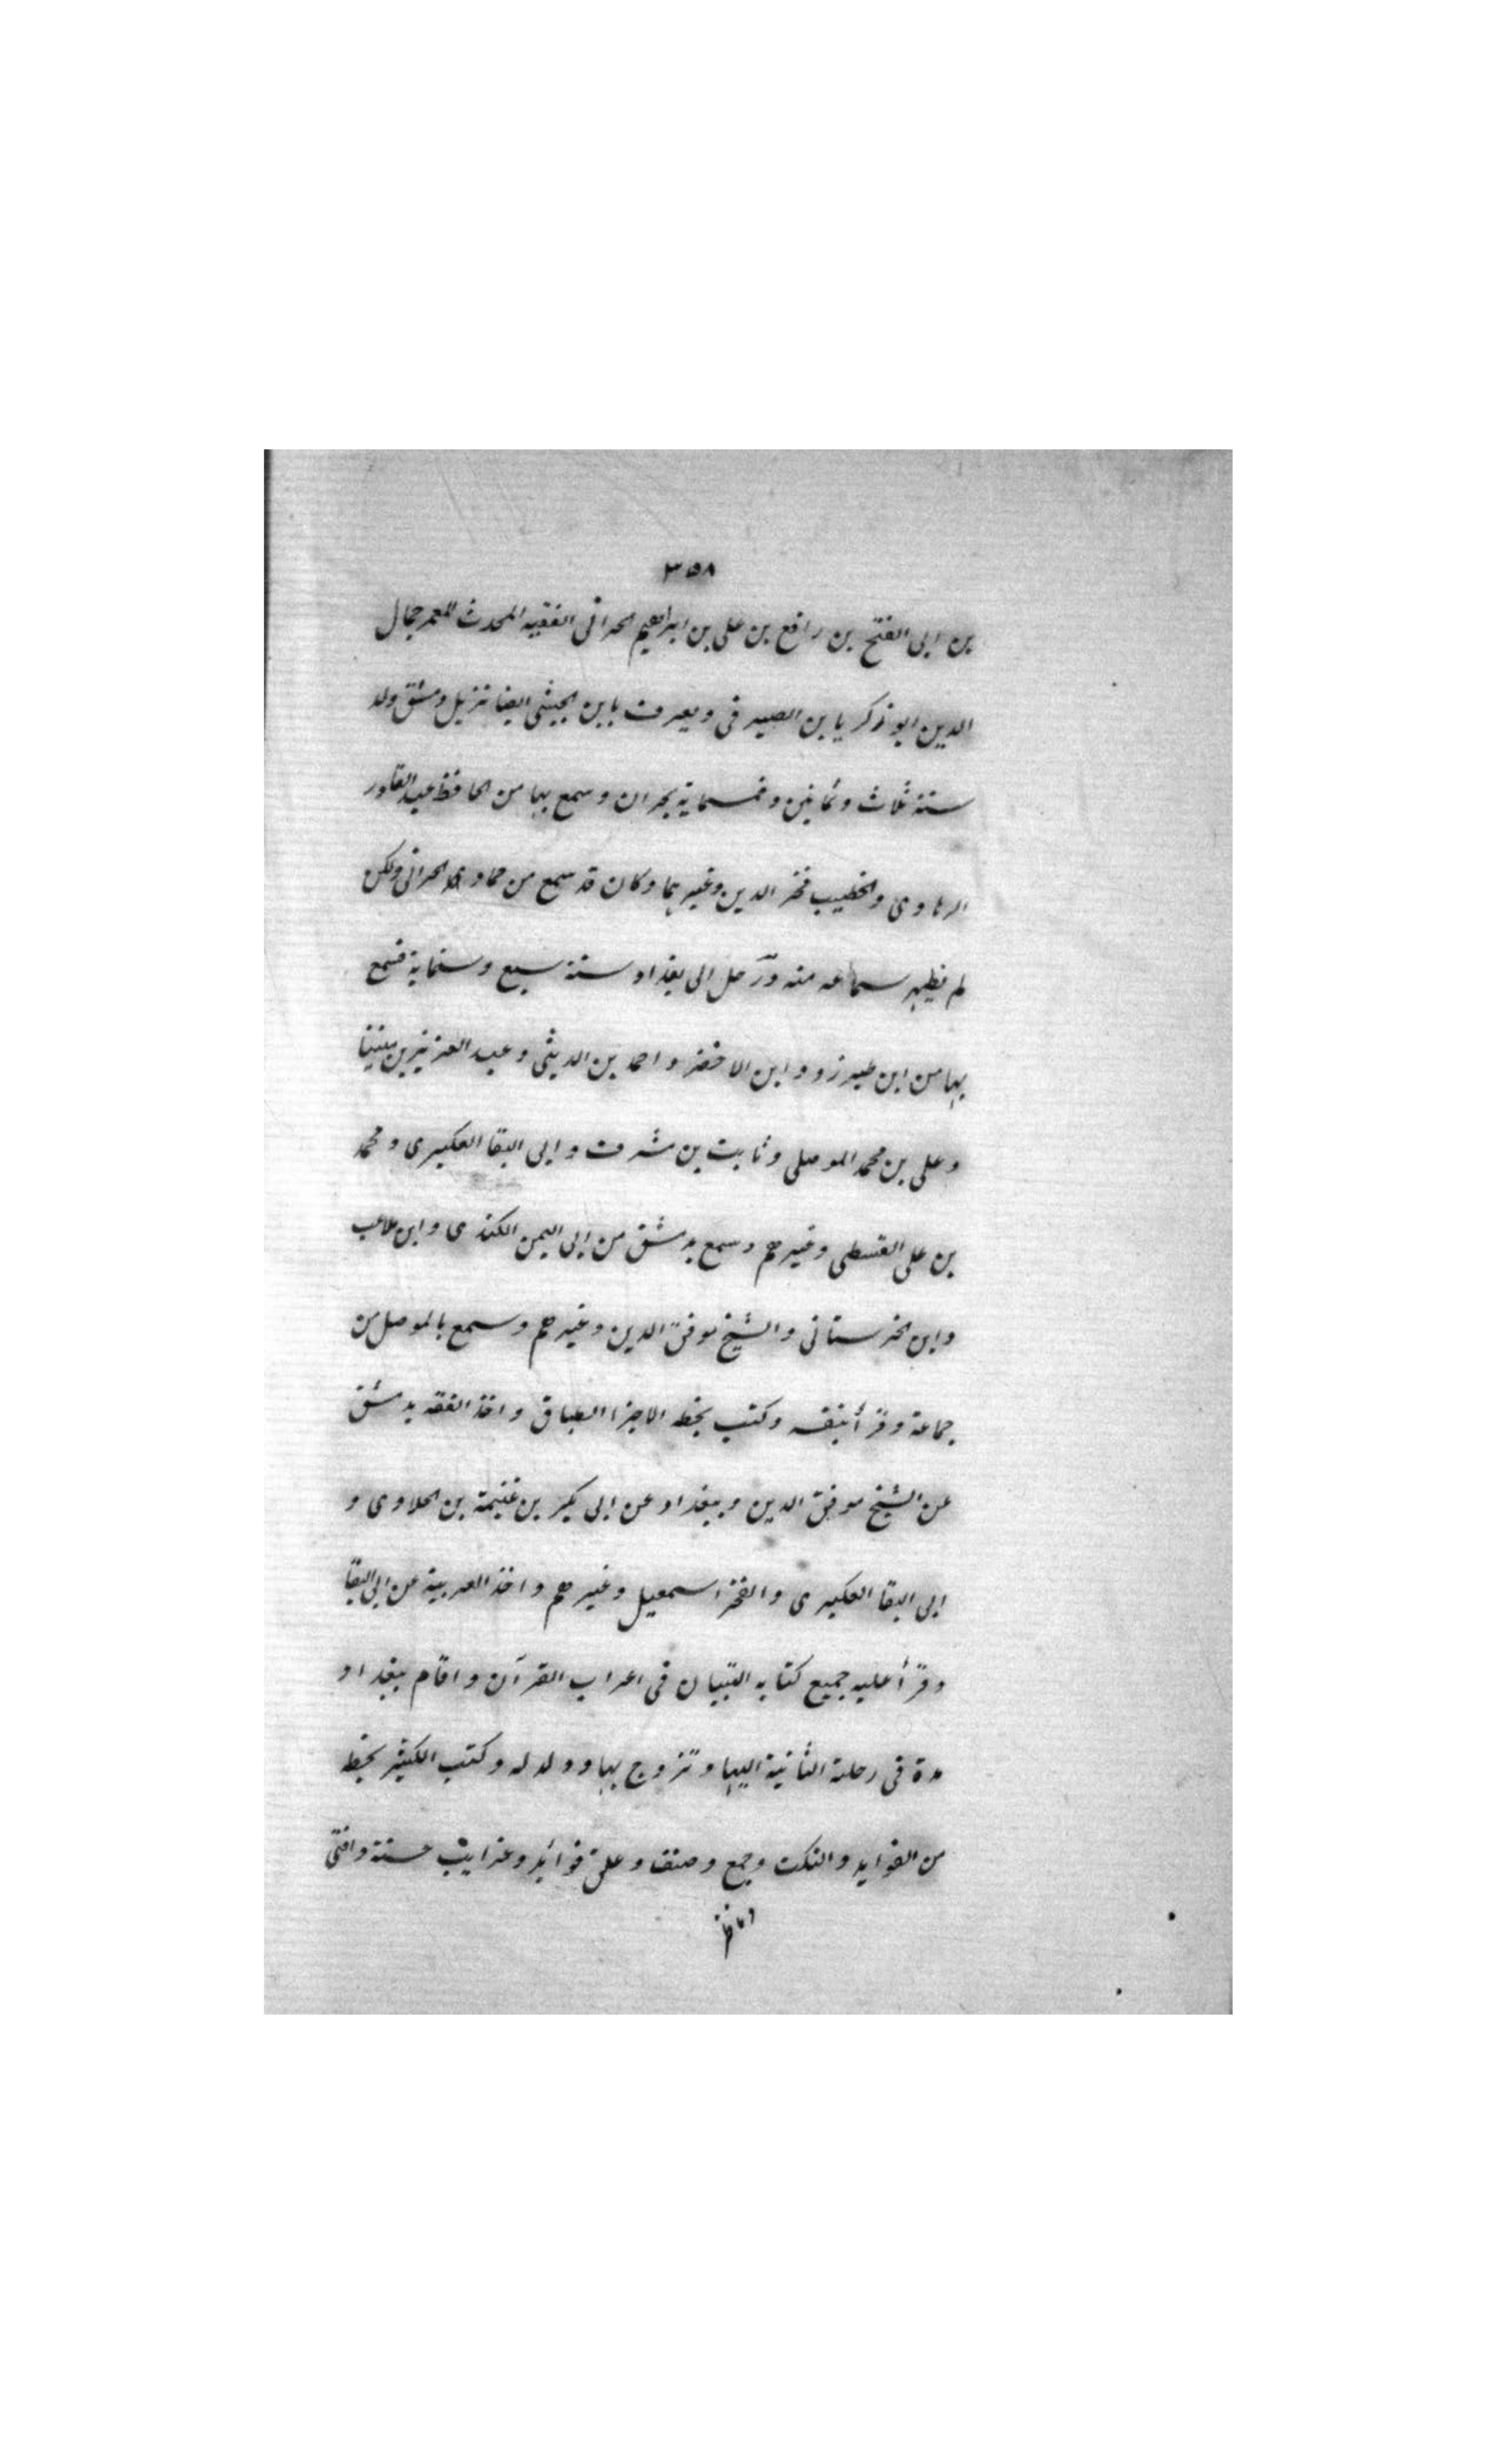 ٣٥٨
بن ابى الفتح بن رافع بن على بن ابراهيم الحرانى الفقيه المحدث المعمر جمال
الدين ابو زكريا بن الصيرفى ويعرف بابن الجيشى ايضا نزيل دمشق ولد
سنة ثلاث وثمانين وخمسماية بحران وسمع بها من الحافظ عبد القادر
الرهاوى والخطيب فخر الدين وغيرهما وكان قد سمع من حماد الحرانى ولكن
لم يظهر سماعه منه ورحل الى بغداد سنة سبع وستماية فسمع
بها من ابن طبرزد وابن الاخضر واحمد بن الدبيثى وعبد العزيز بن منينا
وعلى بن محمد الموصلى وثابت بن مشرف وابى البقا العكبرى ومحمد
بن على القسطى وغيرهم وسمع بدمشق من ابى اليمن الكندى وابن ملاعب
وابن الخرستانى والشيخ موفق الدين وغيرهم وسمع بالموصل من
جماعة وقرأ بنفسه وكتب بخطه الاجزا الطباق واخذ الفقه بدمشق
عن الشيخ موفق الدين وببغداد عن ابى بكر بن غنيمة بن الحلاوى و
ابى البقا العكبرى والفخر اسمعيل وغيرهم واخذ العربية عن ابى البقا
وقرأ عليه جميع كتابه التبيان فى اعراب القرآن واقام ببغداد
مدة فى رحلته الثانية اليها وتزوج بها وولد له وكتب الكثير بخطه
من الفوايد والنكت وجمع وصنف وعلق فوائد وغرايب حسنة وافتى